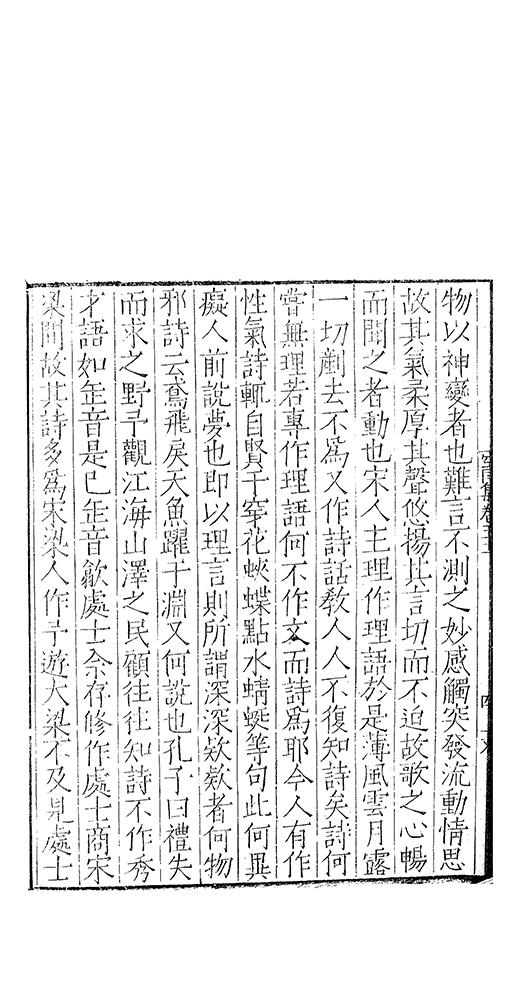 物以神變者也難言不測之妙感觸突發流動情思
故其氣柔厚其聲悠揚其言切而不迫故歌之心暢
而聞之者動也宋人主理作理語於是薄風雲月露
一切剷去不爲又作詩話敎人人不復知詩矣詩何
嘗無理若專作理語何不作文而詩爲耶今人有作
性氣詩輒自賢于穿花蛺蝶點水蜻蜓等句此何異
癡人前說夢也即以理言則所謂深深欵欵者何物
邪詩云鳶飛戾天魚躍于淵又何說也孔子曰禮失
而求之野予觀江海山澤之民顧往往知詩不作秀
才語如缶音是已缶音歙處士佘存修作處士商宋
梁間故其詩多爲宋梁人作予遊大梁不及見處士